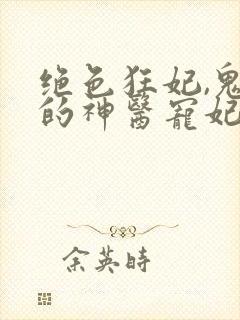 绝色狂妃,鬼
的神醫寵妃
余英時